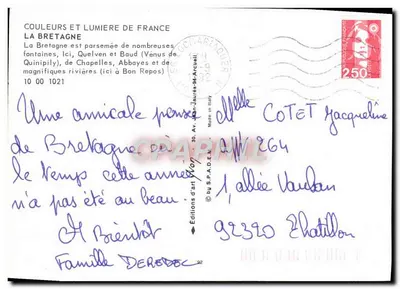 COULEURS ET LUMIERE DE FRANCE
LA BRETAGNE
La Bretagne est parsemée de nombreuses
fontaines, Ici, Quelven et Baud (Vénus de
Quinipily), de Chapelles, Abbayes et de
magnifiques rivières (ici à Bon Repos)
10 00 1021
Une amicale pensée
de Bretagne où
le temps cette année
n'a pas été au beau.
A Bientôt
Famille DEREDEC
Editions d'art
30, Av. Jean-Jaurès
© by S.P.A.D.E.M.
2,50
Melle COTET Jacqueline
264
1, allée Vauban
92320 Chatillon